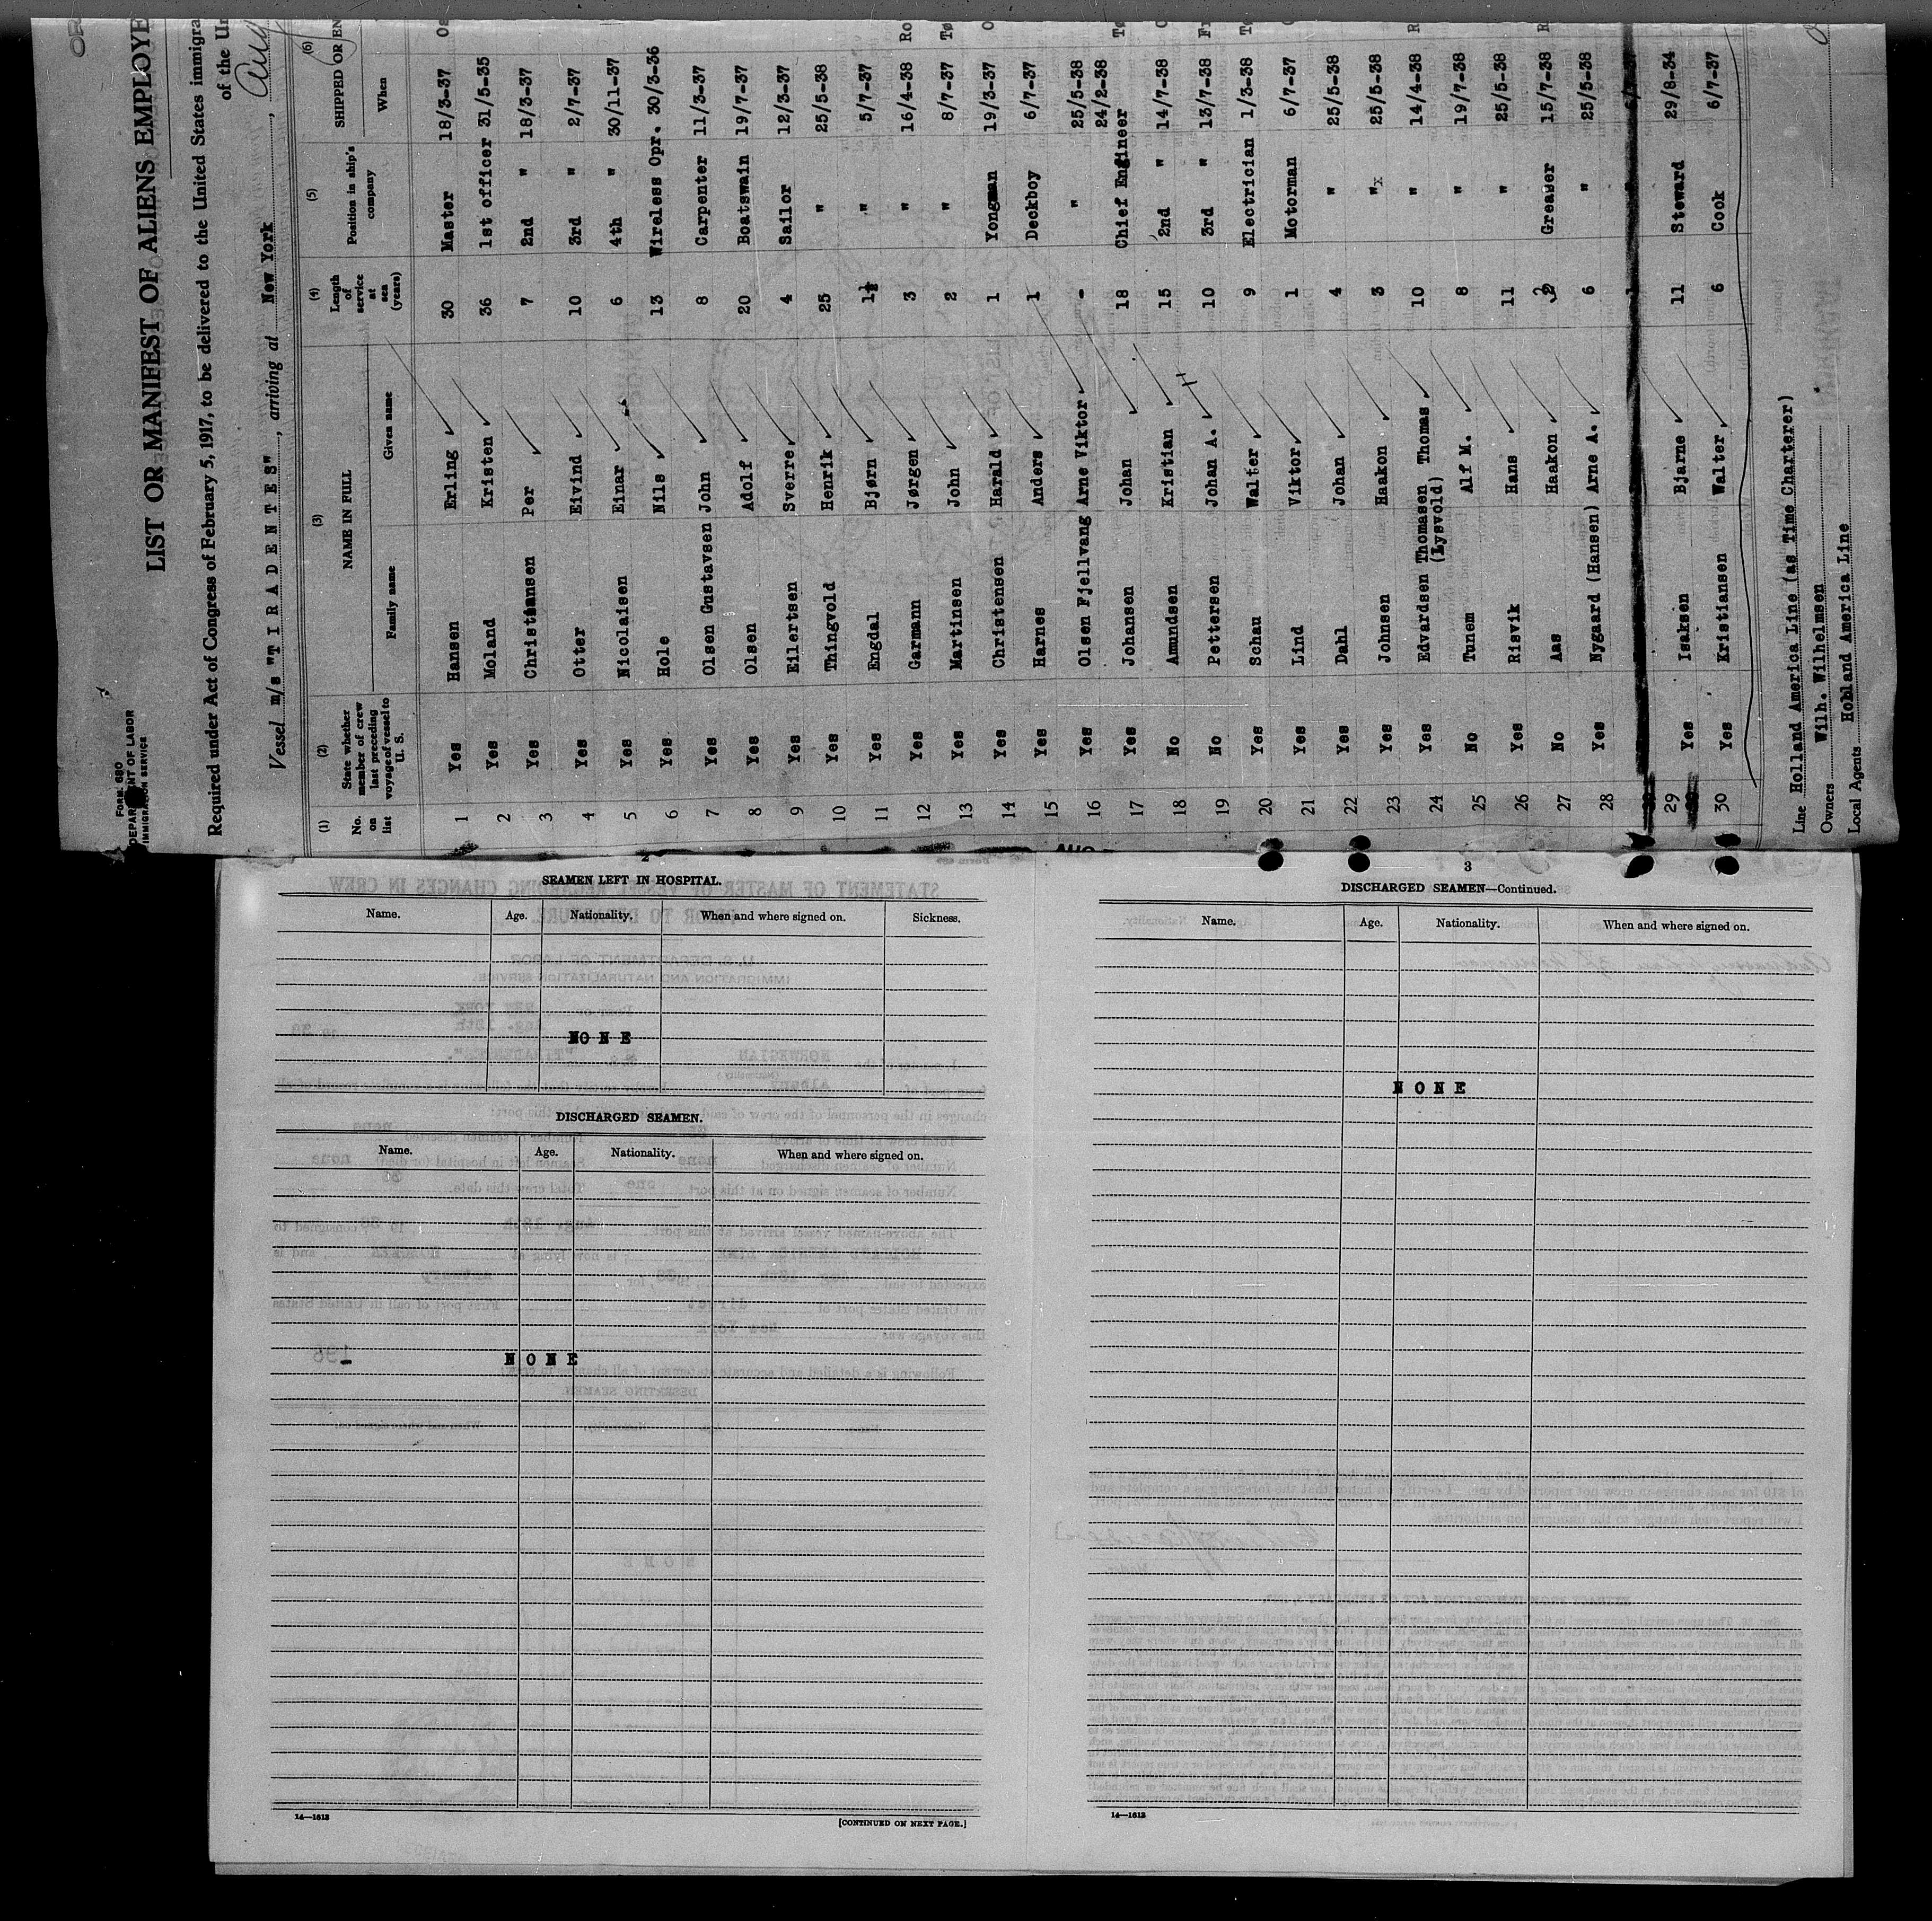 FORM 680
DEPARTMENT OF LABOR
IMMIGRATION SERVICE
LIST OR MANIFEST OF ALIENS EMPLOYE
Required under Act of Congress of February 5, 1917, to be delivered to the United States immigra
of the Un
Vessel m/s "T I R A D E N T E S", arriving at New York, Aug
(1) (2) (3) (4) (5) (6)
No. on list
State whether member of crew last preceding voyage of vessel to U. S.
NAME IN FULL
Family name Given name
Length of service at sea (years)
Position in ship's company
SHIPPED OR EN
When
1 Yes Hansen Erling 30 Master 18/3-37
2 Yes Moland Kristen 36 1st officer 31/5-35
3 Yes Christiansen Per 7 2nd " 18/3-37
4 Yes Otter Eivind 10 3rd " 2/7-37
5 Yes Nicolaisen Einar 6 4th " 30/11-37
6 Yes Hole Nils 13 Wireless Opr. 30/3-36
7 Yes Olsen Gustavsen John 8 Carpenter 11/3-37
8 Yes Olsen Adolf 20 Boatswain 19/7-37
9 Yes Eilertsen Sverre 4 Sailor 12/3-37
10 Yes Thingvold Henrik 25 " 25/5-38
11 Yes Engdal Bjørn 1½ " 5/7-37
12 Yes Garmann Jørgen 3 " 16/4-38 Ro
13 Yes Martinsen John 2 " 8/7-37 Tø
14 Yes Christensen Harald 1 Yongman 19/3-37 O
15 Yes Harnes Anders 1 Deckboy 6/7-37
16 Yes Olsen Fjellvang Arne Viktor - " 25/5-38
17 Yes Johansen Johan 18 Chief Engineer 24/2-38 Tø
18 No Amundsen Kristian 15 2nd " 14/7-38
19 No Pettersen Johan A. 10 3rd " 13/7-38 Fr
20 Yes Schau Walter 9 Electrician 1/3-38 Tø
21 Yes Lind Viktor 1 Motorman 6/7-37
22 Yes Dahl Johan 4 " 25/5-38
23 Yes Johnsen Haakon 3 "x 25/5-38
24 Yes Edvardsen Thomasen Thomas 10 " 14/4-38 R
(Lysvold)
25 No Tunem Alf M. 8 " 19/7-38
26 Yes Risvik Hans 11 " 25/5-38
27 No Aas Haakon Greaser 15/7-38 R
28 Yes Nygaard (Hansen) Arne A. 6 " 25/5-38
29 Yes Isaksen Bjarne 11 Steward 29/8-34
30 Yes Kristiansen Walter 6 Cook 6/7-37
Line Holland America Line (as Time Charterer)
Owners Wilh. Wilhelmsen
Local Agents Holland America Line
2
SEAMEN LEFT IN HOSPITAL.
Name. Age. Nationality. When and where signed on. Sickness.
N O N E
DISCHARGED SEAMEN.
Name. Age. Nationality. When and where signed on.
N O N E
14—1613
[CONTINUED ON NEXT PAGE.]
3
DISCHARGED SEAMEN—Continued.
Name. Age. Nationality. When and where signed on.
N O N E
14—1613